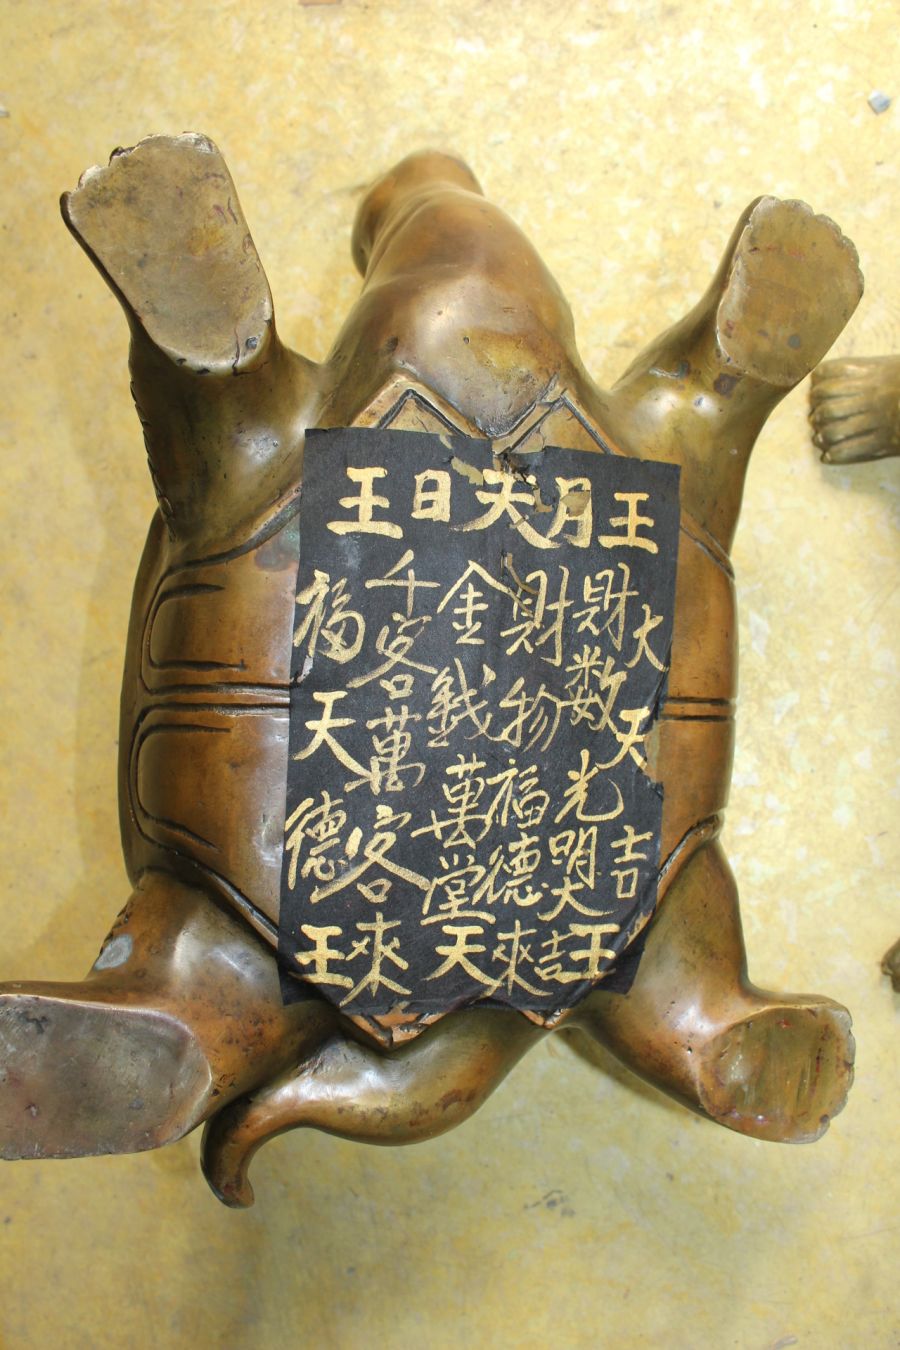 王日天月王
大天吉王
財数光明大吉
財物福德來
金錢萬萬堂天
千客萬客來
福天德王